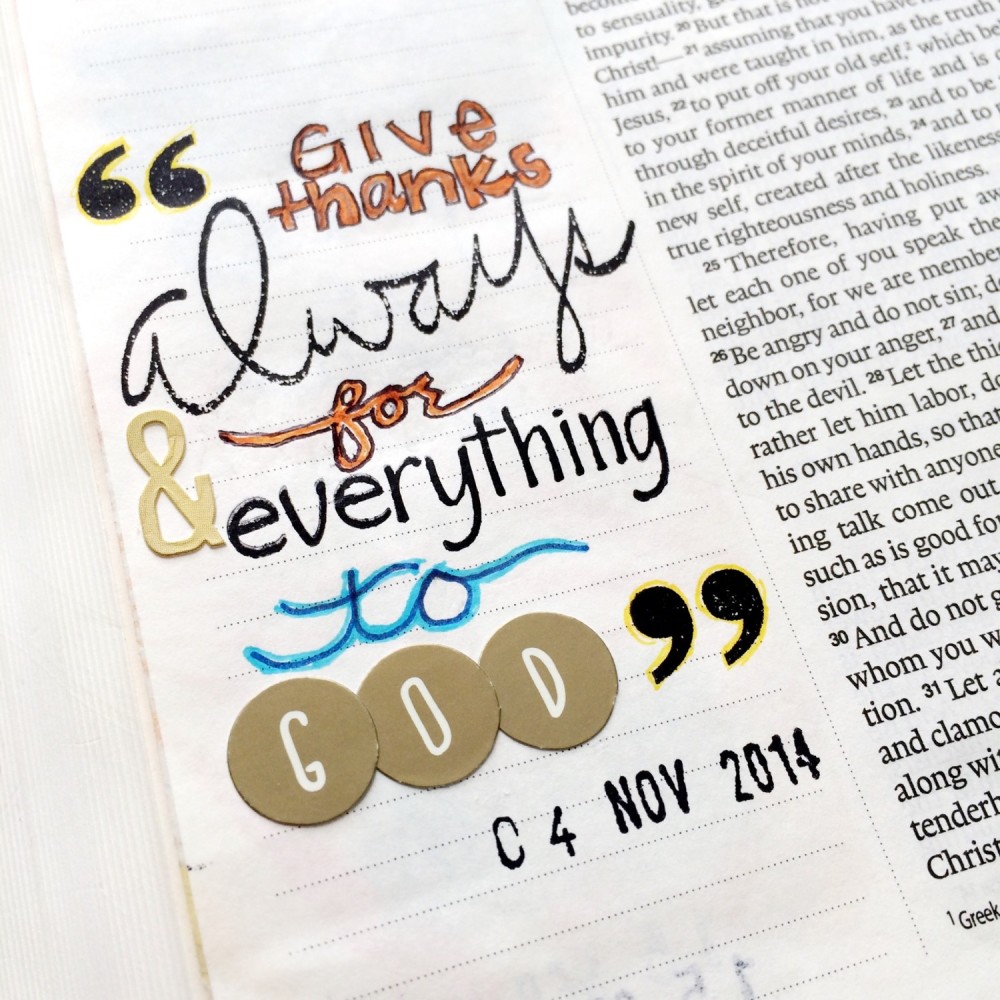 “ Give
thanks
always
for
& everything
to
GOD ”
C4 NOV 2014
to sensuality,
impurity. 20 But that is no
21 assuming that you have
Christ!—
him and were taught in him, as the truth
Jesus, 22 to put off your old self, 2 which be
to your former manner of life and is
through deceitful desires, 23 and to be
in the spirit of your minds, 24 and to
new self, created after the likeness
true righteousness and holiness.
25 Therefore, having put aw
let each one of you speak the
neighbor, for we are membe
26 Be angry and do not sin; d
down on your anger, 27 and
to the devil. 28 Let the thi
rather let him labor, do
his own hands, so tha
to share with anyone
ing talk come out
such as is good fo
sion, that it may
30 And do not g
whom you w
tion. 31 Let a
and clamo
along wi
tenderh
Christ
1 Greek